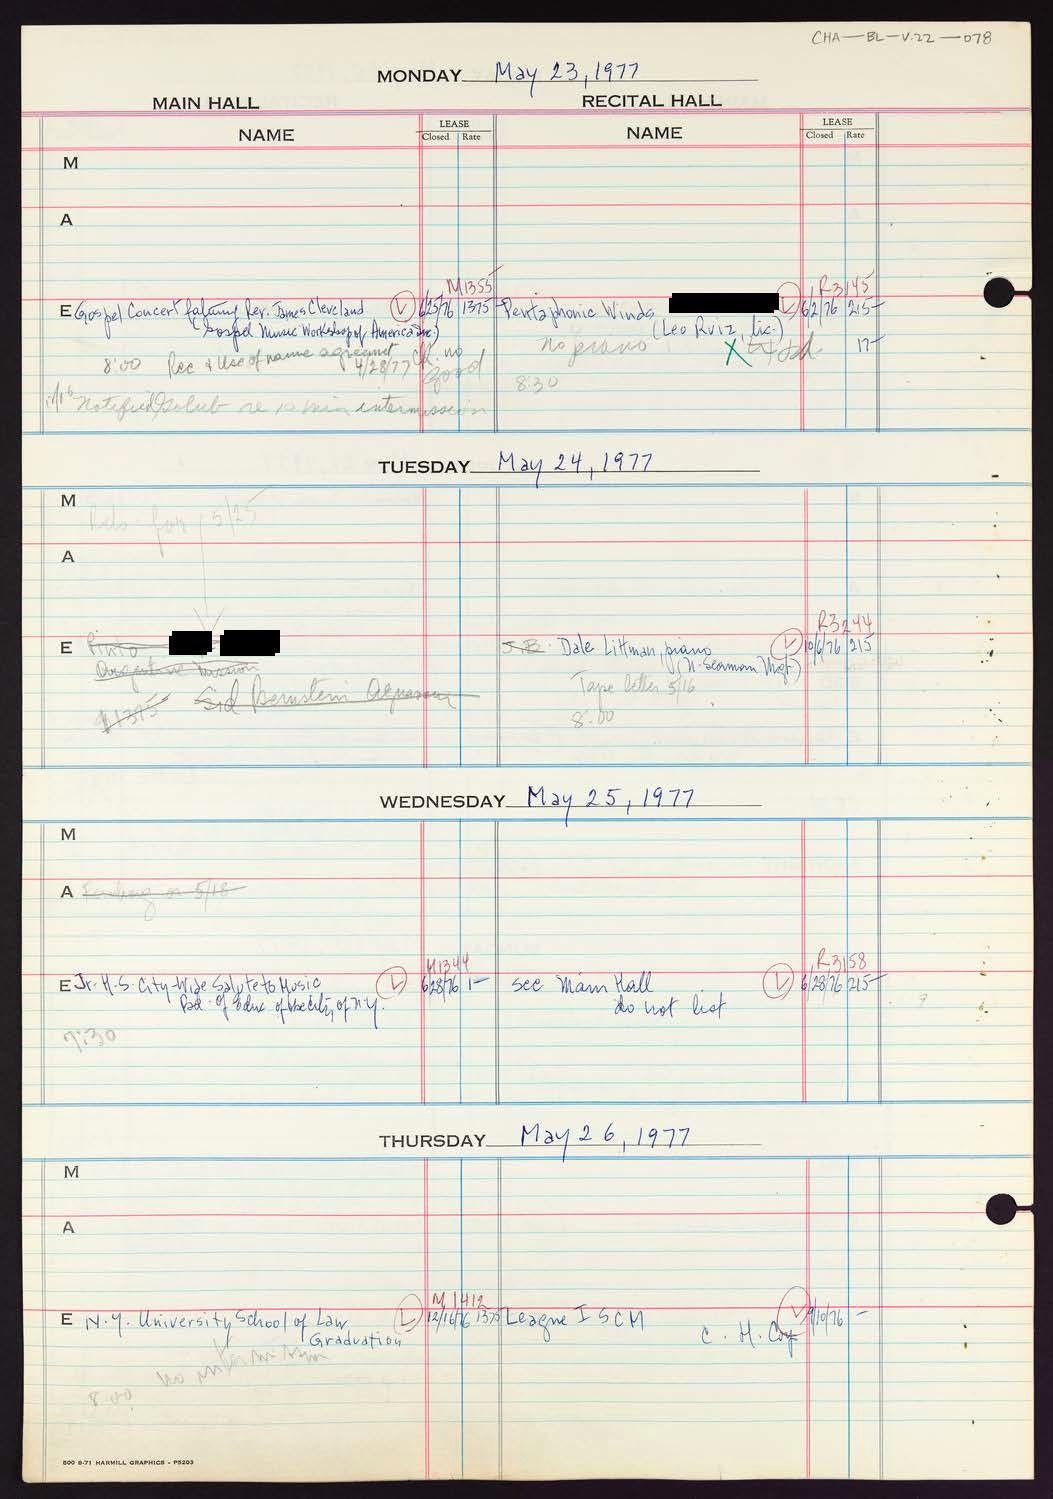 CHA-BL-V.22-078
MONDAY May 23, 1977
MAIN HALL
RECITAL HALL
NAME
LEASE
Closed Rate
NAME
LEASE
Closed Rate
M
A
M1355
E Gospel Concert Rev. James Cleveland L 6/25/76 1375
(Gospel Music Workshop of America Inc)
8:00 Rec & Use of name agreemnt
4/28/77 no
good
Notified re min intermission
R3145
Pentaphonic Winds L 6/2/76 215-
(Leo Rviz, lic.)
no piano
X
17-
8:30
TUESDAY May 24, 1977
M
for 5/25
A
E Pinto
Argentine Mission
$1375 Sid Bernstein
R3244
J.B. Dale Littman, piano L 10/6/76 215
(N. Seaman Mgt)
Tape letter 5/16
8:00
WEDNESDAY May 25, 1977
M
A on 5/18
M1344
E Jr. H.S. City-Wide Salute to Music L 6/28/76 1-
Bd. of Educ of the City of N.Y.
7:30
R3158
see Main Hall L 6/28/76 215-
do not list
THURSDAY May 26, 1977
M
A
M1412
E N.Y. University School of Law L 12/16/76 1375
Graduation
no intermission
8:00
League ISCM L 9/10/76 -
C. H. Coy
500 8-71 HARMILL GRAPHICS - P5203